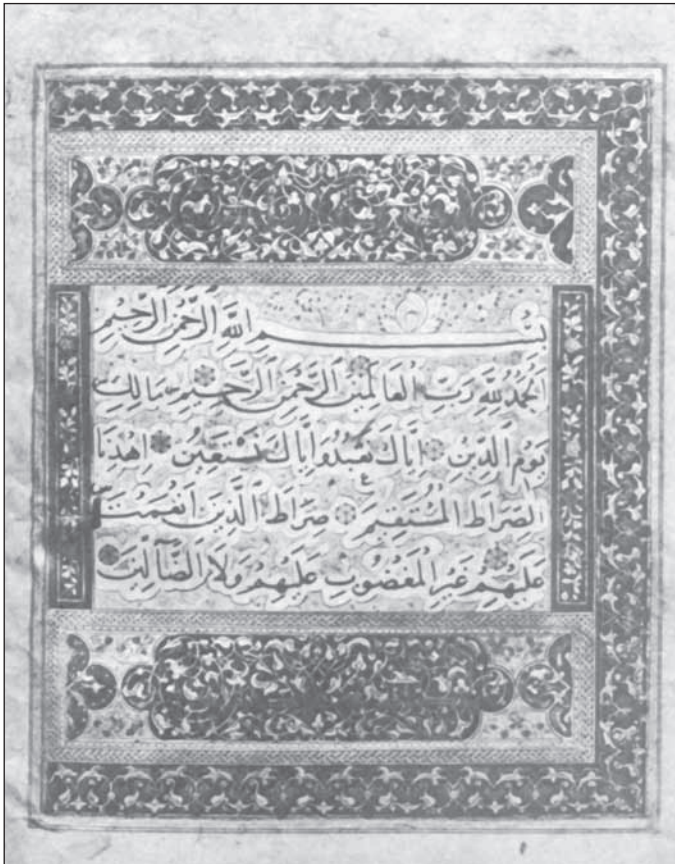 بِسْمِ اللَّهِ الرَّحْمَنِ الرَّحِيمِ
اَلْحَمْدُ لِلَّهِ رَبِّ الْعَالَمِينَ الرَّحْمَنِ الرَّحِيمِ مَالِكِ
يَوْمِ الدِّينِ اِيَّاكَ نَعْبُدُ وَاِيَّاكَ نَسْتَعِينُ اِهْدِنَا
الصِّرَاطَ الْمُسْتَقِيمَ صِرَاطَ الَّذِينَ اَنْعَمْتَ
عَلَيْهِمْ غَيْرِ الْمَغْضُوبِ عَلَيْهِمْ وَلَا الضَّآلِّينَ